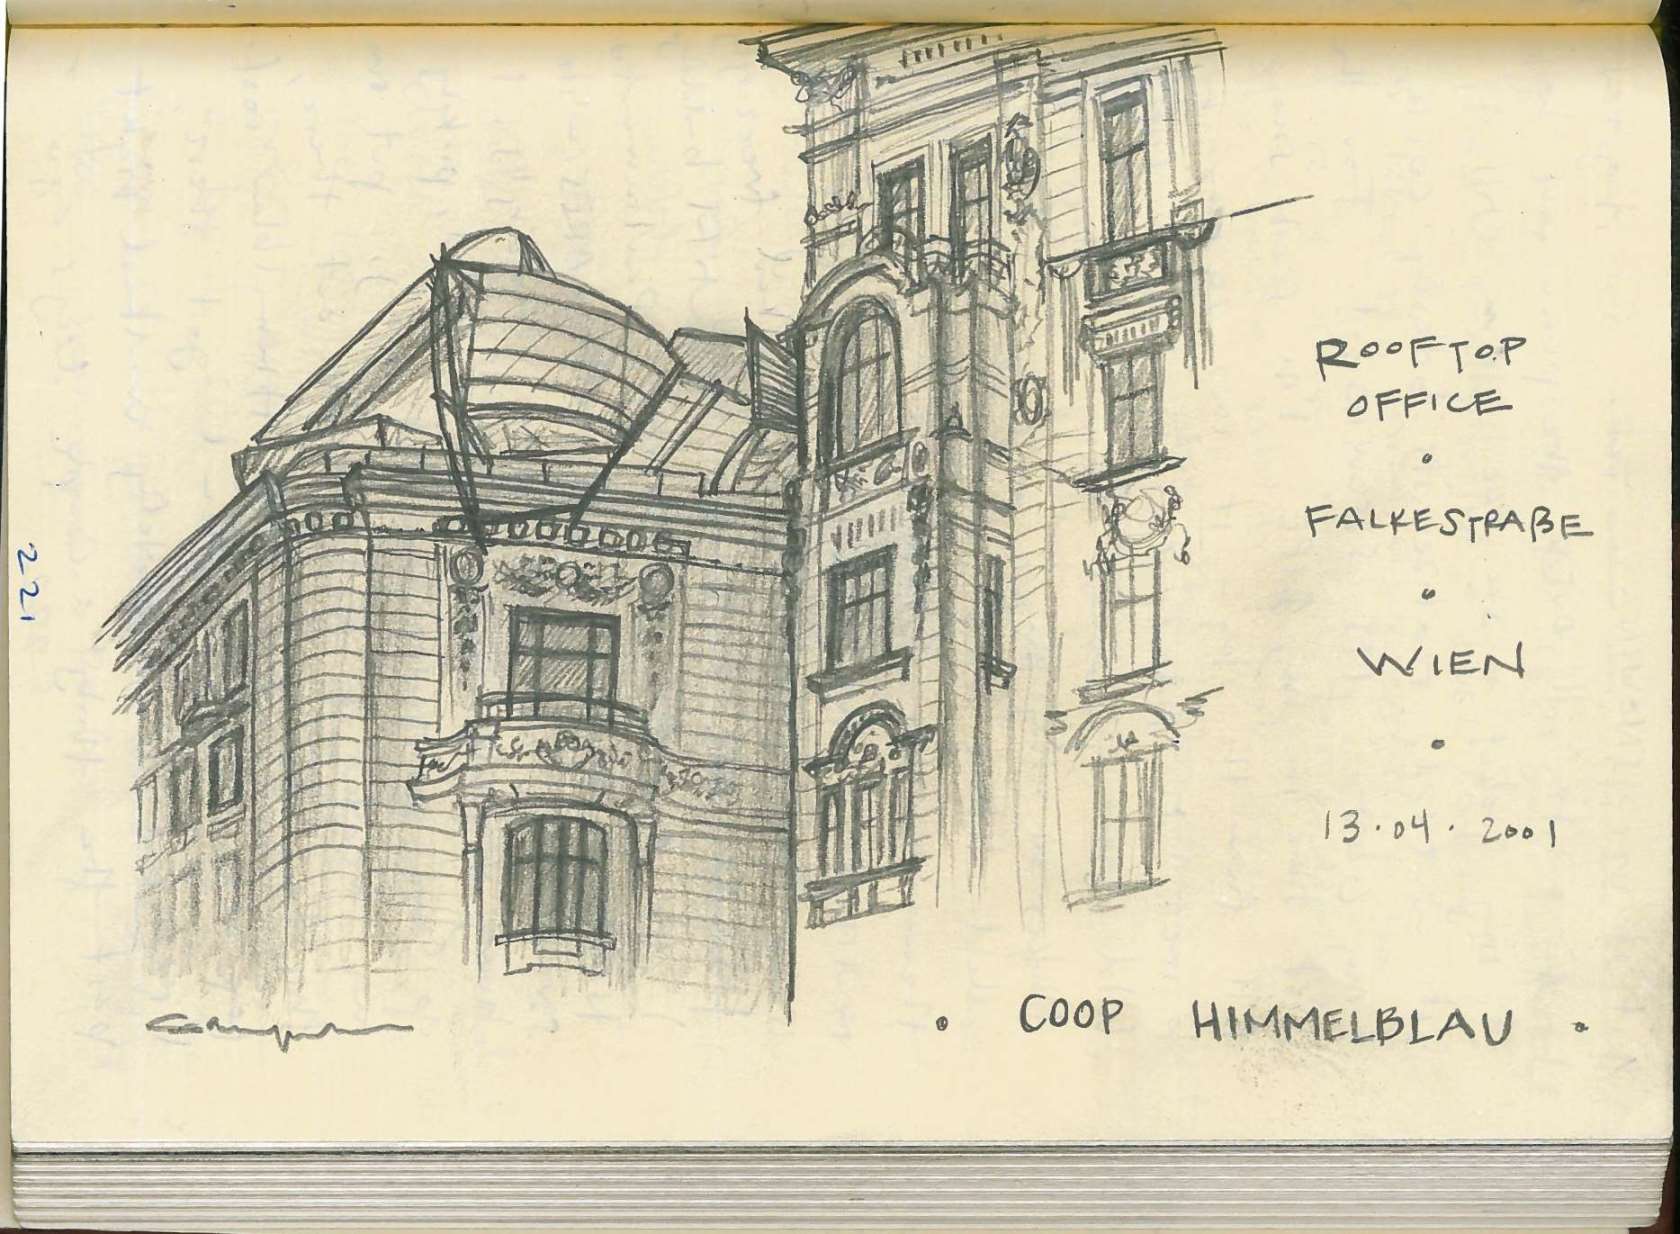 ROOFTOP
OFFICE
•
FALKESTRAßE
•
WIEN
•
13.04.2001
• COOP HIMMELBLAU •
221